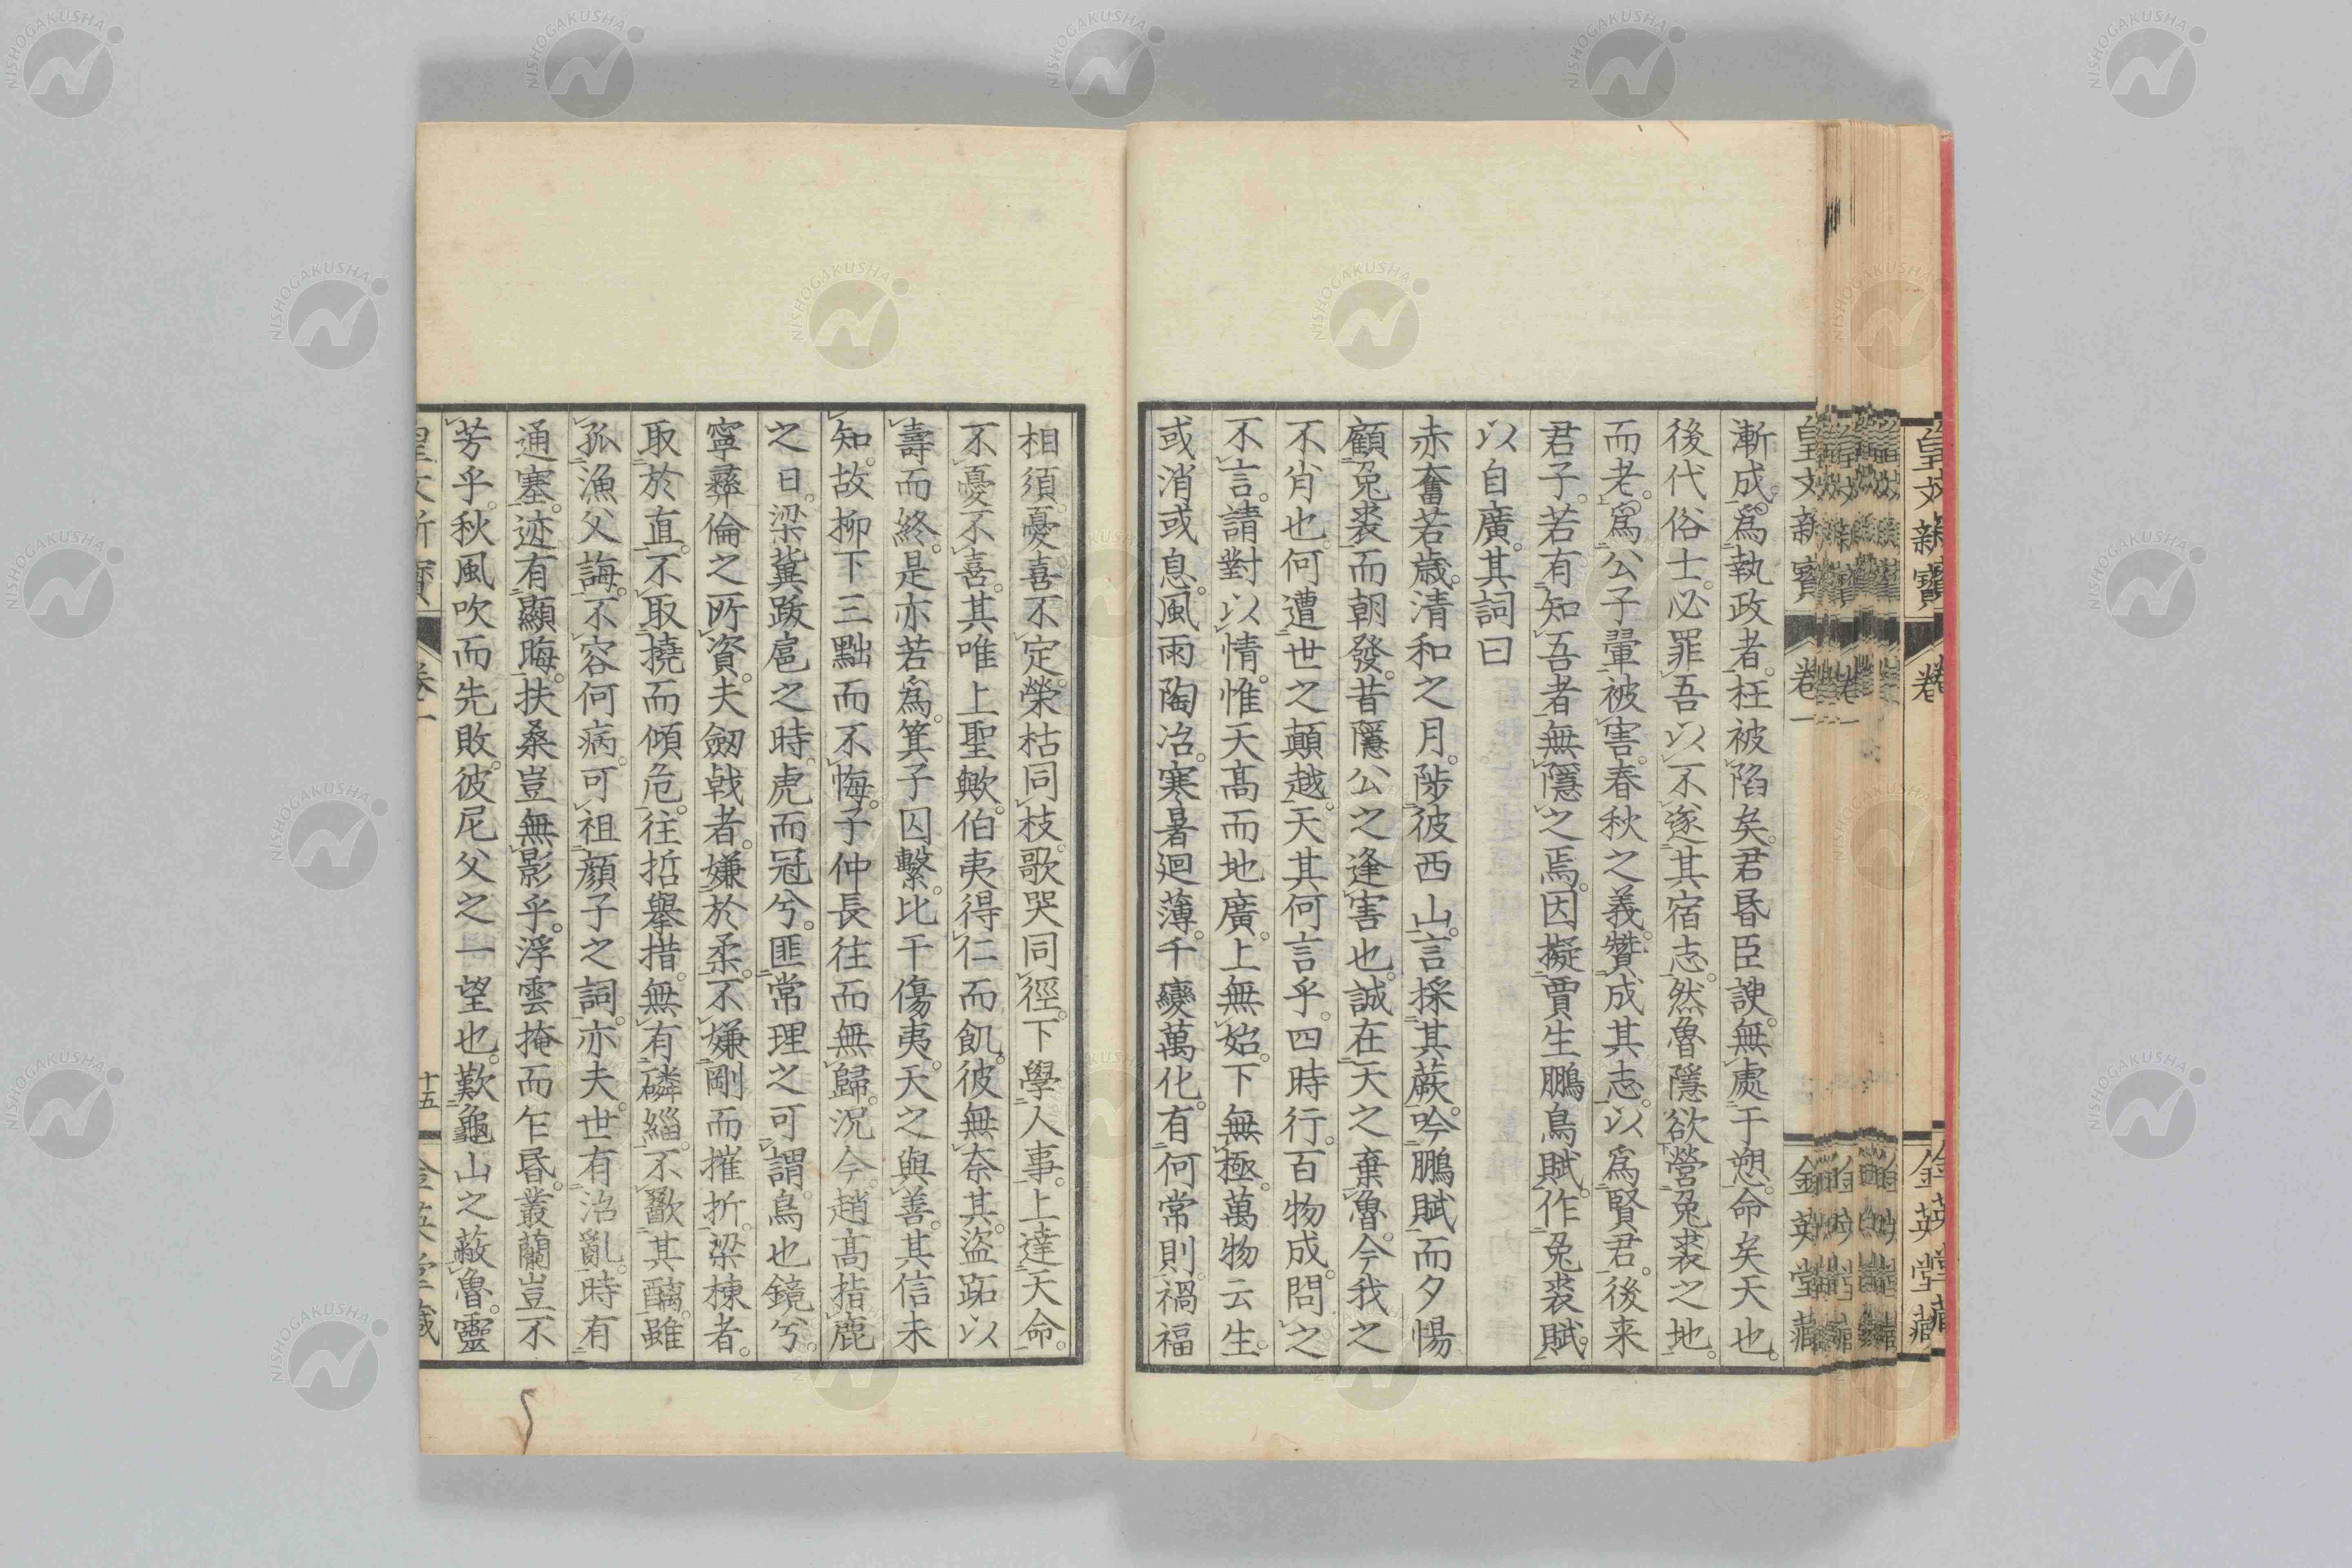 漸成。爲執政者。枉被陷矣。君昏臣諛。無處于愬。命矣天也。
後代俗士。必罪吾以不遂其宿志。然魯隱欲營菟裘之地。
而老。爲公子翬被害。春秋之義。贊成其志。以爲賢君。後来
君子。若有知吾者。無隱之焉。因擬賈生鵩鳥賦。作菟裘賦。
以自廣。其詞曰
赤奮若歳。清和之月。陟彼西山。言採其蕨。吟鵩賦而夕惕
顧菟裘而朝發。昔隱公之逢害也。誠在天之棄魯。今我之
不肖也。何遭世之顛越。天其何言乎。四時行。百物成。問之
不言。請對以情。惟天髙而地廣。上無始。下無極。萬物云生。
或消或息。風雨陶冶。寒暑廻薄。千變萬化。有何常則。禍福
相須。憂喜不定。榮枯同枝。歌哭同徑。下學人事。上達天命。
不憂不喜。其唯上聖歟。伯夷得仁而飢。彼無奈其。盜跖以
壽而終。是亦若爲。箕子囚繫。比干傷夷。天之與善。其信未
知。故柳下三黜而不悔。子仲長往而無歸。況今。趙髙指鹿
之日。梁冀跋扈之時。虎而冠兮。匪常理之可謂。鳥也鏡兮。
寧彝倫之所資。夫劔戟者。嫌於柔。不嫌剛而摧折。梁棟者。
取於直。不取撓而傾危。往哲舉措。無有磷緇。不歠其醨。雖
孤漁父誨。不容何病。可祖顔子之詞。亦夫。世有治亂。時有
通塞。迹有顯晦。扶桑豈無影乎。浮雲掩而乍昏。叢蘭豈不
芳乎。秋風吹而先敗。彼尼父之一望也。歎龜山之蔽魯。靈
皇文新寶 卷一 十五 金英堂藏
皇文新寶 卷一 金英堂藏